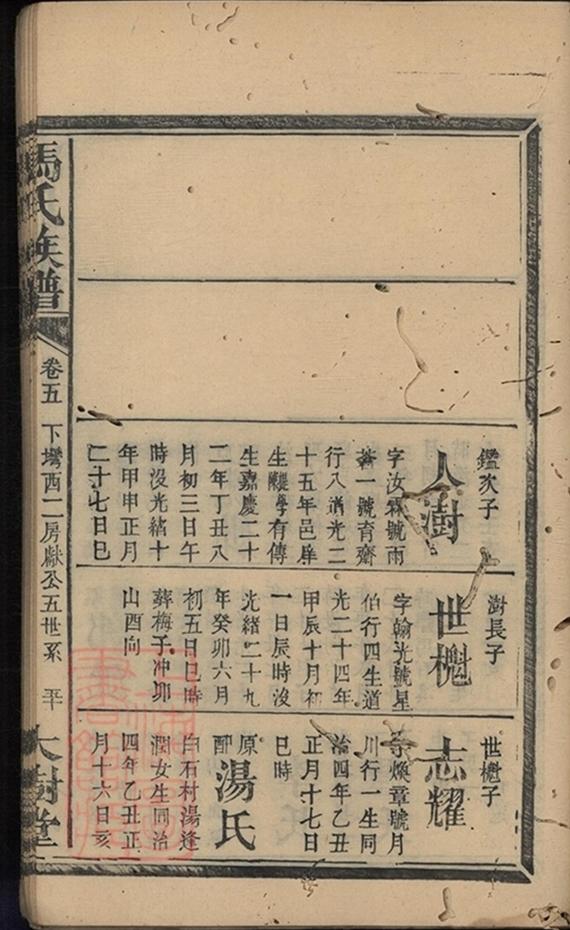 鑑次子
人澍
字汝霖號雨
菴一號育齋
行八道光二
十五年邑庠
生 有傳
生嘉慶二十
二年丁丑八
月初三日午
時沒光緒十
年甲申正月
二十七日巳
澍長子
世櫆
字翰光號星
伯行四生道
光二十四年
甲辰十月初
一日辰時沒
光緒二十九
年癸卯六月
初五日巳時
葬梅子冲卯
山酉向
世櫆子
志耀
字煥章號月
川行一生同
治四年乙丑
正月十七日
巳時
原配湯氏
白石村湯逢
潤女生同治
四年乙丑正
月十六日亥
馮氏族譜
卷五 下壪西二房獻公五世系 平
大樹堂